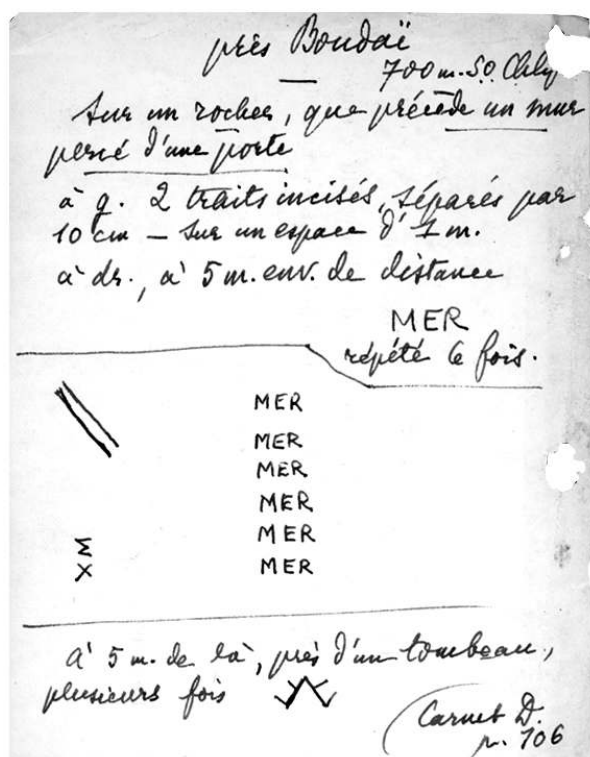 près Boudaï
700 m. SO Chly
sur un rocher, que précède un mur
percé d'une porte
à g. 2 traits incisés, séparés par
10 cm – sur un espace d'1 m.
à dr., à 5 m. env. de distance
MER
répété 6 fois.
MER
MER
MER
MER
MER
MER
XM
à 5 m. de là, près d'un tombeau,
plusieurs fois
Carnet D.
p. 106